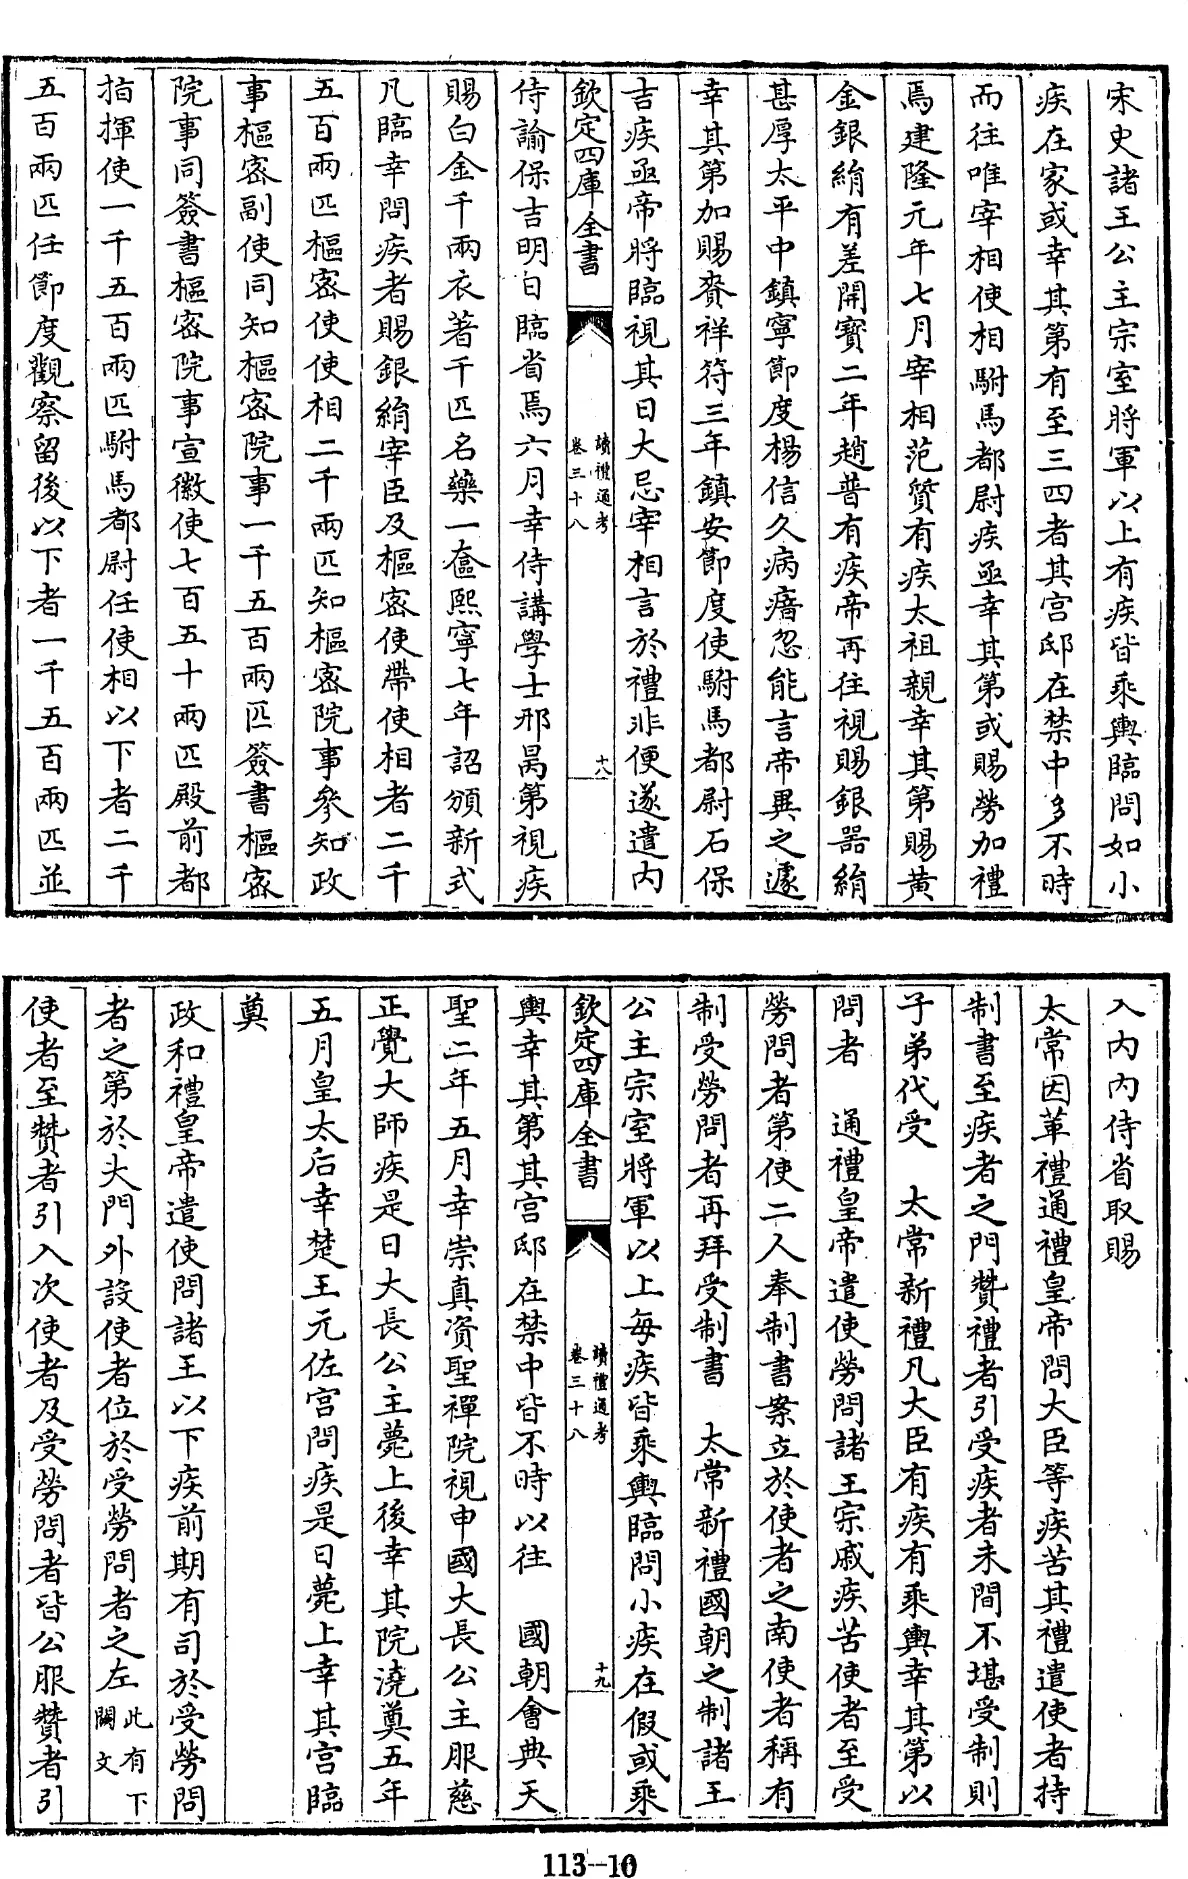 宋史諸王公主宗室將軍以上有疾皆乘輿臨問如小
疾在家或幸其第有至三四者其宫邸在禁中多不時
而往唯宰相使相駙馬都尉疾亟幸其第或賜勞加禮
焉建隆元年七月宰相范質有疾太祖親幸其第賜黄
金銀絹有差開寶二年趙普有疾帝再往視賜銀器絹
甚厚太平中鎮寧節度楊信久病瘖忽能言帝異之遽
幸其第加賜賚祥符三年鎮安節度使駙馬都尉石保
吉疾亟帝將臨視其日大忌宰相言於禮非便遂遣内
欽定四庫全書
讀禮通考
卷三十八
十八
侍諭保吉明日臨省焉六月幸侍講學士邢昺第視疾
賜白金千兩衣著千匹名藥一奩熙寧七年詔頒新式
凡臨幸問疾者賜銀絹宰臣及樞密使帶使相者二千
五百兩匹樞密使使相二千兩匹知樞密院事參知政
事樞密副使同知樞密院事一千五百兩匹簽書樞密
院事同簽書樞密院事宣徽使七百五十兩匹殿前都
指揮使一千五百兩匹駙馬都尉任使相以下者二千
五百兩匹任節度觀察留後以下者一千五百兩匹並
入内内侍省取賜
太常因革禮通禮皇帝問大臣等疾苦其禮遣使者持
制書至疾者之門贊禮者引受疾者未間不堪受制則
子弟代受　太常新禮凡大臣有疾有乘輿幸其第以
問者　通禮皇帝遣使勞問諸王宗戚疾苦使者至受
勞問者第使二人奉制書案立於使者之南使者稱有
制受勞問者再拜受制書　太常新禮國朝之制諸王
公主宗室將軍以上每疾皆乘輿臨問小疾在假或乘
欽定四庫全書
讀禮通考
卷三十八
十九
輿幸其第其宫邸在禁中皆不時以往　國朝會典天
聖二年五月幸崇真資聖禪院視申國大長公主服慈
正覺大師疾是日大長公主薨上後幸其院澆奠五年
五月皇太后幸楚王元佐宫問疾是日薨上幸其宫臨
奠
政和禮皇帝遣使問諸王以下疾前期有司於受勞問
者之第於大門外設使者位於受勞問者之左此有下闕文
使者至贊者引入次使者及受勞問者皆公服贊者引
113-10